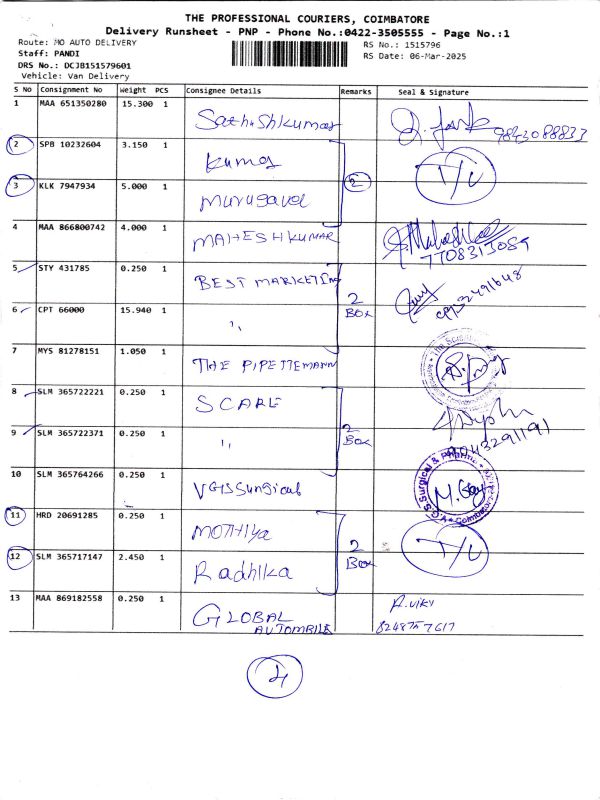 THE PROFESSIONAL COURIERS, COIMBATORE
Delivery Runsheet - PNP - Phone No.:0422-3505555 - Page No.:1
Route: MO AUTO DELIVERY
RS No.: 1515796
Staff: PANDI
RS Date: 06-Mar-2025
DRS No.: DCJB151579601
Vehicle: Van Delivery
S No Consignment No Weight PCS Consignee Details Remarks Seal & Signature
1 MAA 651350280 15.300 1 Sathishkumar 9843088833
2 SPB 10232604 3.150 1 Kumar
2 T/U
3 KLK 7947934 5.000 1 Murugavel
4 MAA 866800742 4.000 1 MAHESHKUMAR
5 STY 431785 0.250 1 BEST MARKETING
2 BOX
6 CPT 66000 15.940 1 "
7 MYS 81278151 1.050 1 THE PIPETTEMANN
8 SLM 365722221 0.250 1 SCARE
2 BOX
9 SLM 365722371 0.250 1 "
10 SLM 365764266 0.250 1 VGSSurgical M. Gay
11 HRD 20691285 0.250 1 MOTHIYA
2 Box T/U
12 SLM 365717147 2.450 1 Radhika
13 MAA 869182558 0.250 1 GLOBAL AUTOMBILE R. VIKY
4